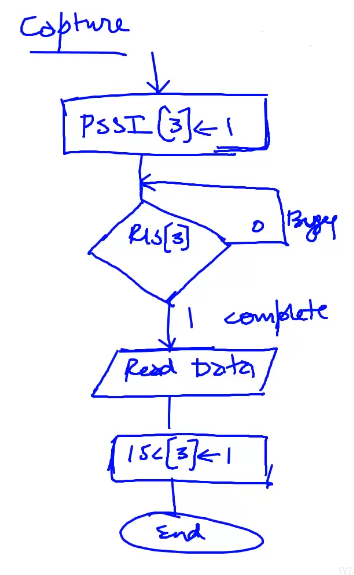 Capture
PSSI[3]←1
RIS[3]
0 Busy
1 complete
Read Data
ISC[3]←1
End